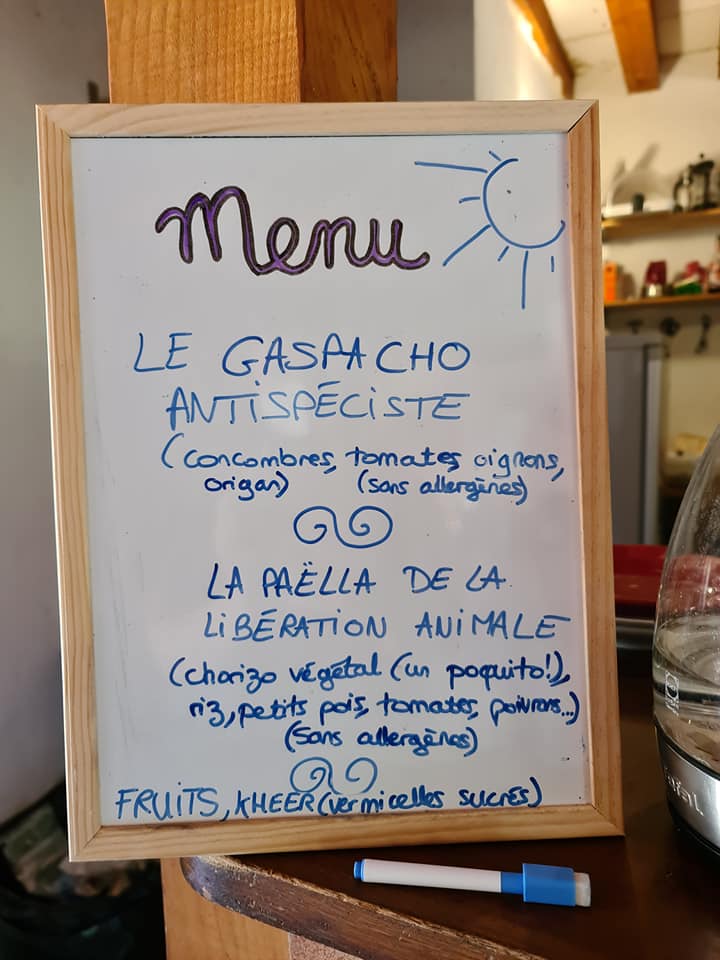 Menu
LE GASPACHO
ANTISPÉCISTE
(concombres, tomates, oignons,
origan) (sans allergènes)
LA PAËLLA DE LA
LIBÉRATION ANIMALE
(chorizo végétal (un poquito!),
riz, petits pois, tomates, poivrons...)
(sans allergènes)
FRUITS, KHEER (vermicelles sucrés)